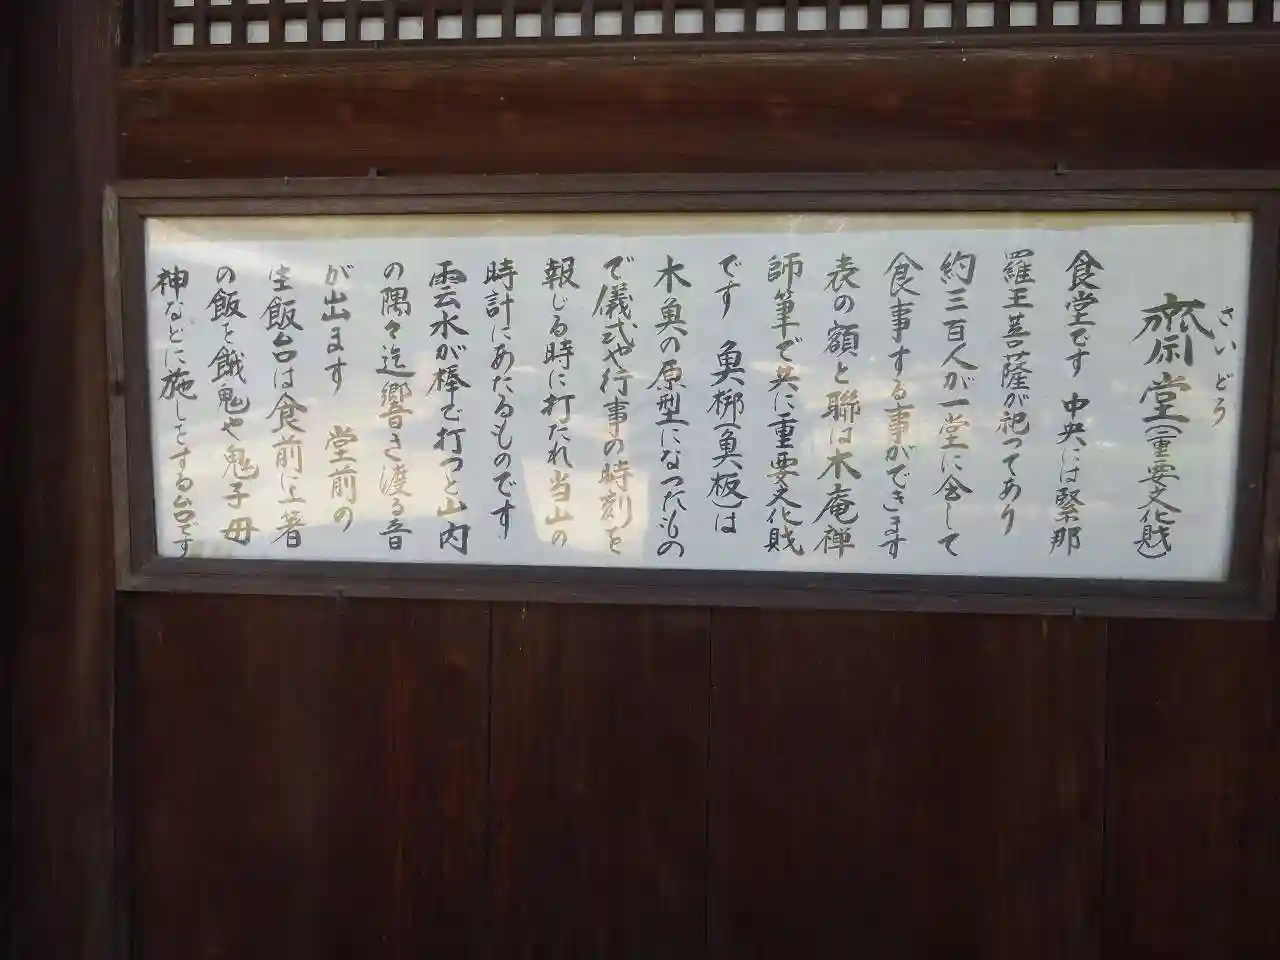 さいどう
斎堂(重要文化財)
食堂です 中央には緊那
羅王菩薩が祀つてあり
約三百人が一堂に会して
食事する事ができます
表の額と聯は木庵禅
師筆で共に重要文化財
です 魚梛(魚板)は
木魚の原型になつたもの
で儀式や行事の時刻を
報じる時に打たれ当山の
時計にあたるものです
雲水が棒で打つと山内
の隅々迄響き渡る音
が出ます 堂前の
生飯台は食前に一箸
の飯を餓鬼や鬼子母
神などに施しをする台です